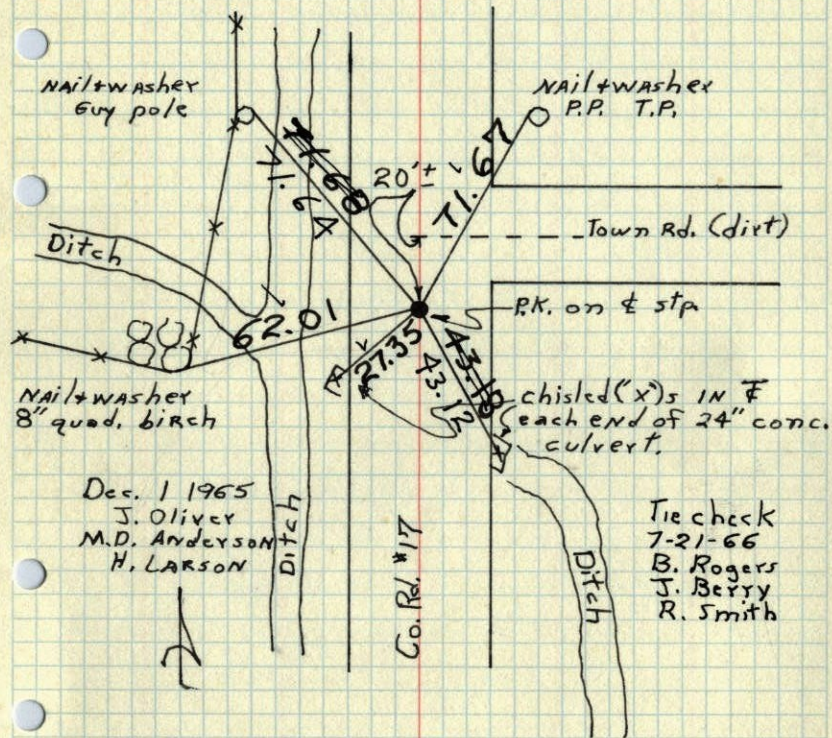 NAil + WASher
Guy pole
NAil + WASher
P.P. T.P.
71.68
71.64
20'±
71.67
Town Rd. (dirt)
Ditch
62.01
P.K. on ℄ stp.
27.35
43.18
43.12
NAil + WASher
8" quad. biRch
chisled ("x")s IN
each eNd of 24" conc.
culvert.
Dec. 1 1965
J. Oliver
M.D. Anderson
H. LARSON
Ditch
Co. Rd. #17
Ditch
Tie check
7-21-66
B. Rogers
J. Berry
R. Smith